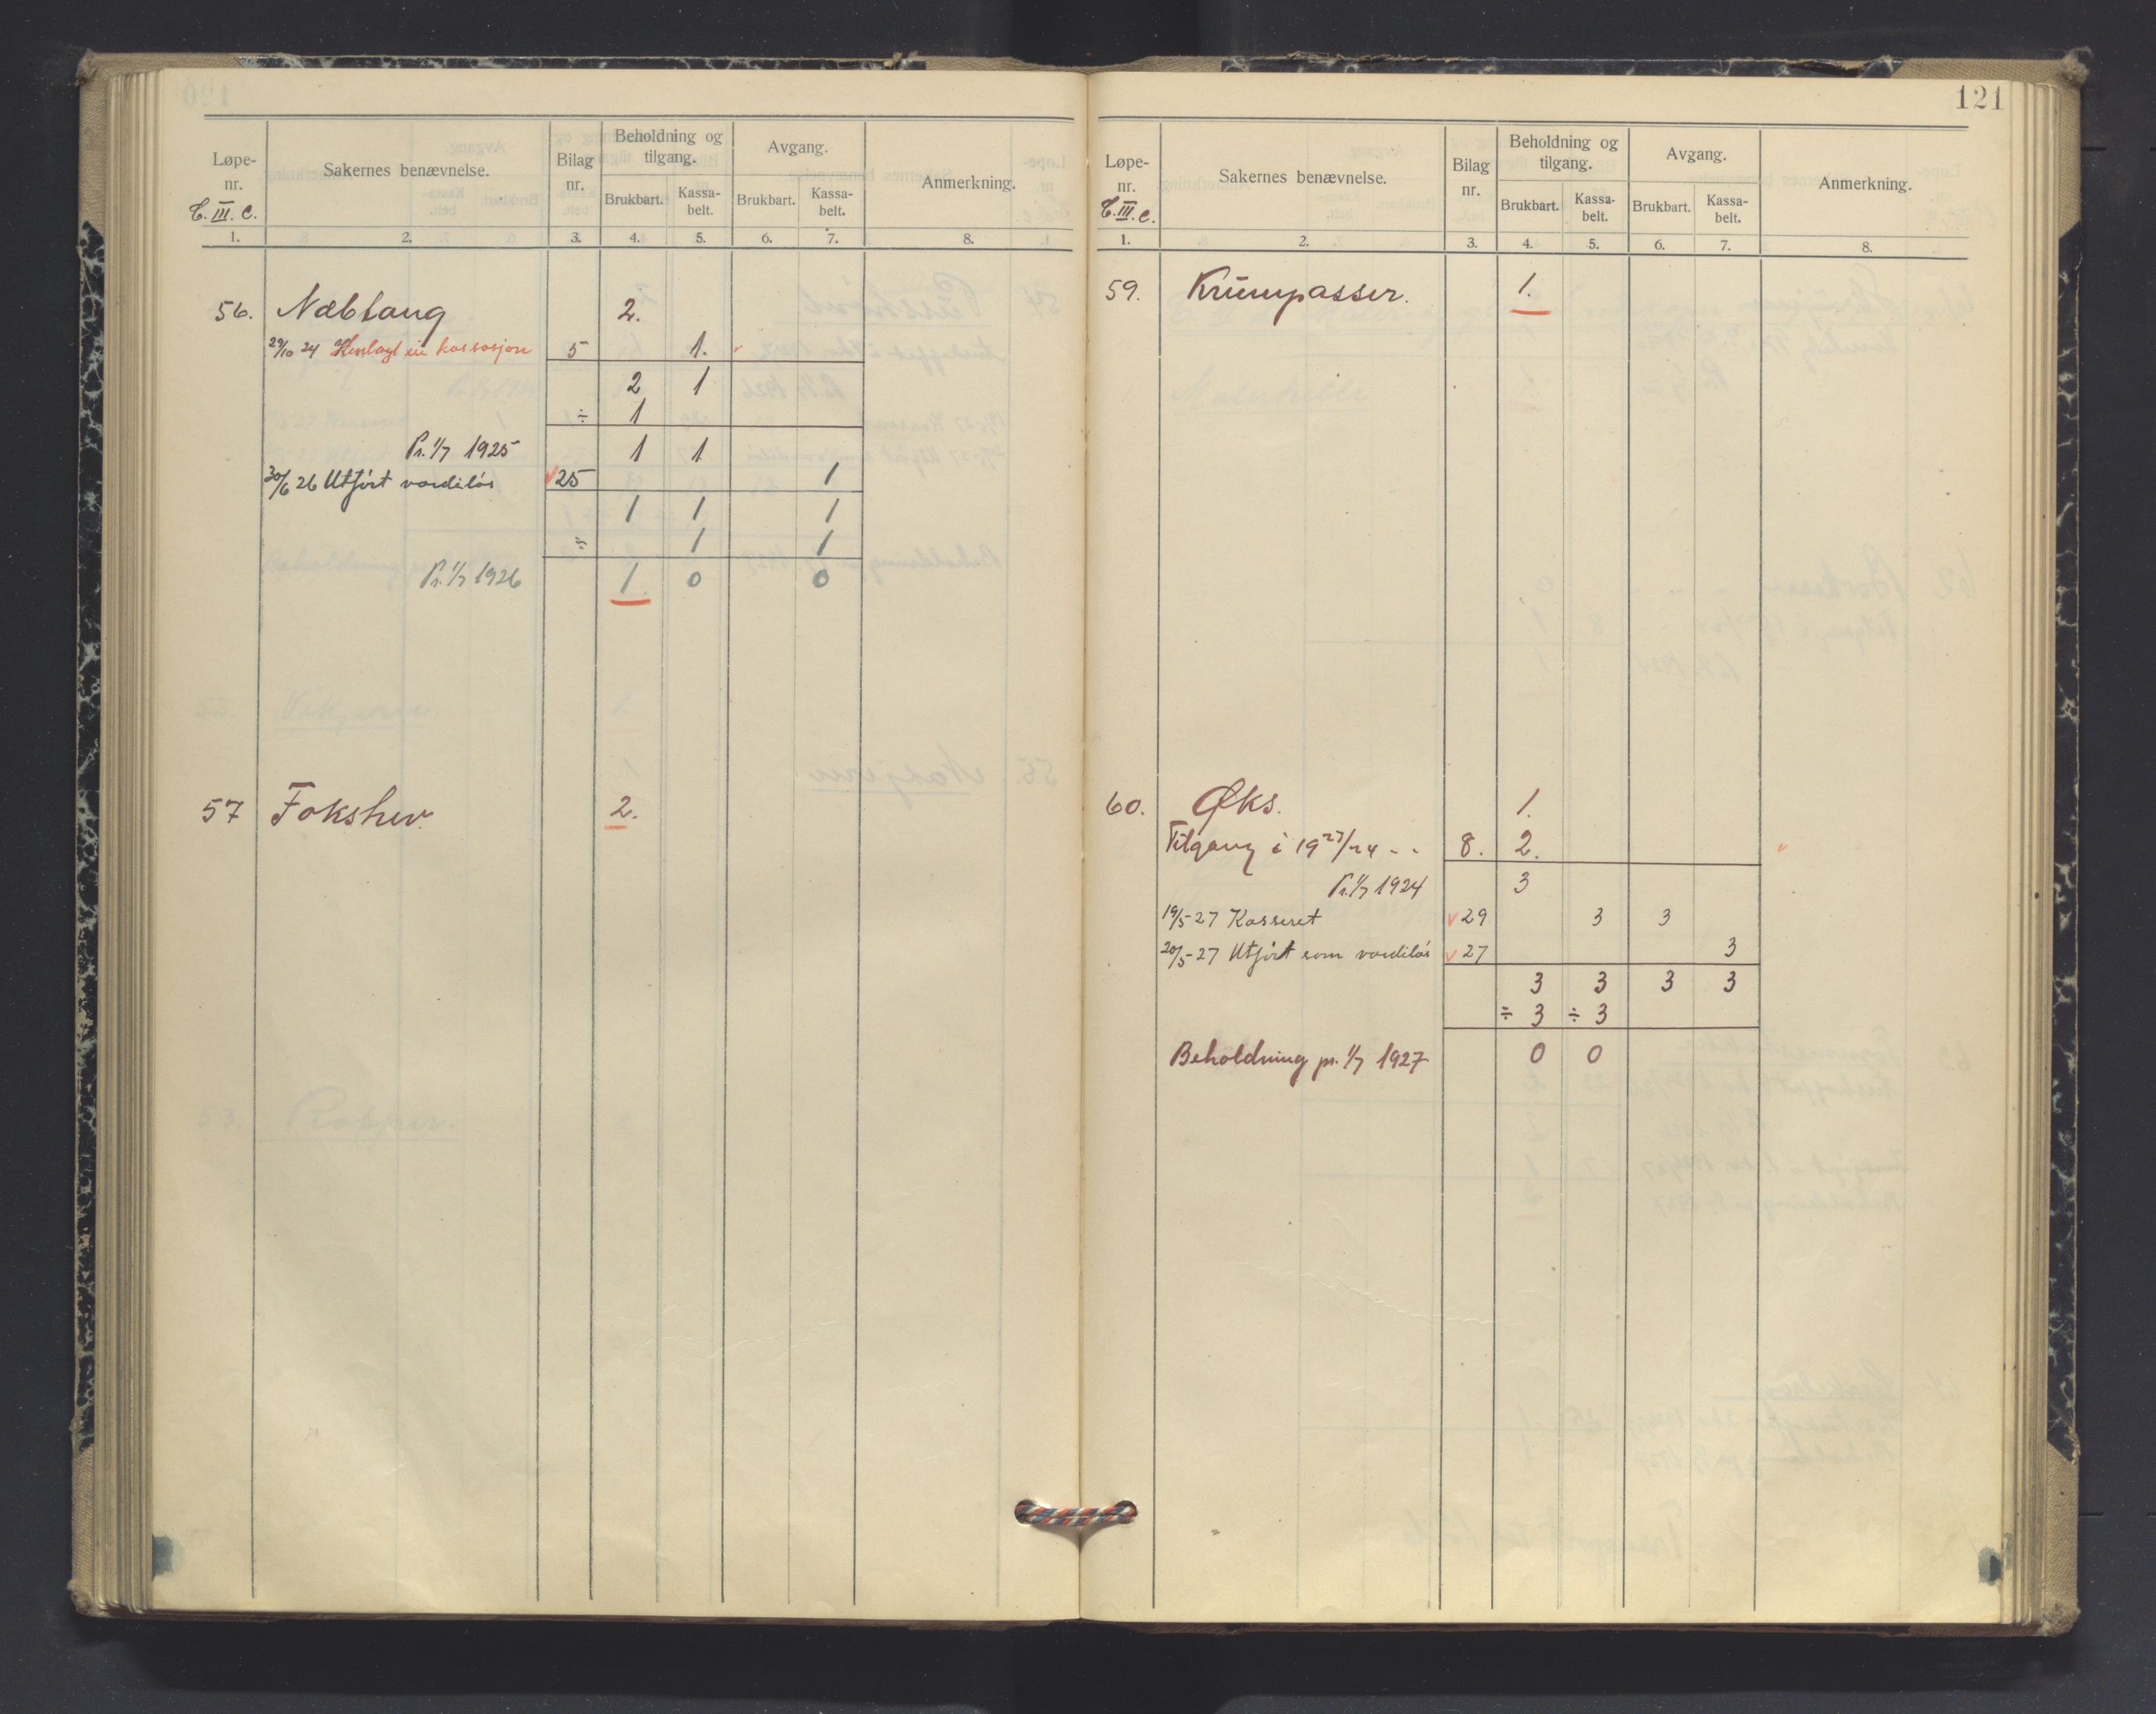 Løpe-nr. | Sakernes benævnelse. | Bilag nr. | Beholdning og tilgang. | Avgang. | Anmerkning.
Brukbart. | Kassa-belt. | Brukbart. | Kassa-belt.
III. C.
1. | 2. | 3. | 4. | 5. | 6. | 7. | 8.
56. Nebtang 2.
29/10 24 Henlagt til kassasjon 5 1.
2 1
÷ 1
Pr. 1/7 1925 1 1
30/6 26 Utført verdiløs 25 1
1 1 1
÷ 1 1
Pr. 1/7 1926 1 0 0
57 Fokshev. 2.
121
Løpe-nr. | Sakernes benævnelse. | Bilag nr. | Beholdning og tilgang. | Avgang. | Anmerkning.
Brukbart. | Kassa-belt. | Brukbart. | Kassa-belt.
III. C.
1. | 2. | 3. | 4. | 5. | 6. | 7. | 8.
59. Krumpasser. 1.
60. Øks. 1.
Tilgang i 19 23/24 - - 8. 2.
Pr. 1/7 1924 3
19/5-27 Kasseret 29 3 3
20/5-27 Utført som verdiløs 27 3
3 3 3 3
÷ 3 ÷ 3
Beholdning pr. 1/7 1927 0 0